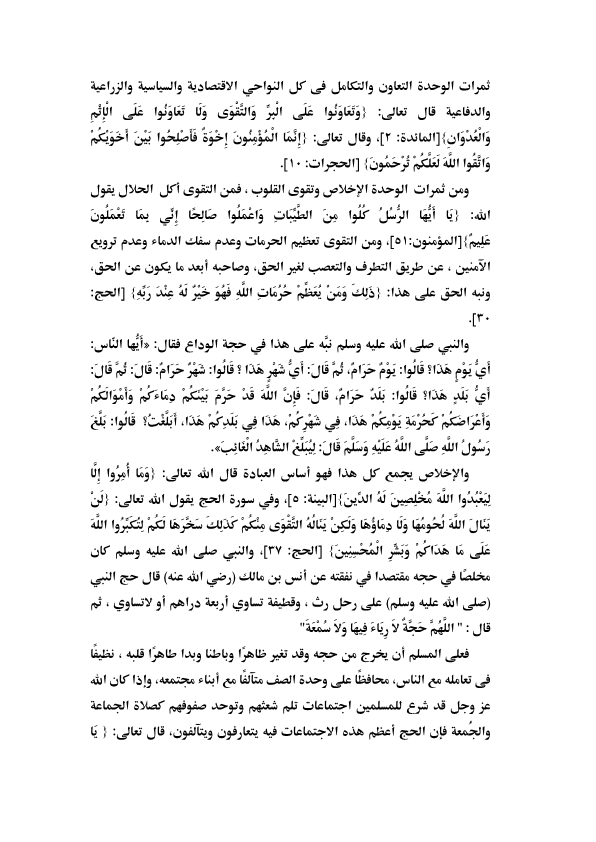 ثمرات الوحدة التعاون والتكامل فى كل النواحي الاقتصادية والسياسية والزراعية
والدفاعية قال تعالى: {وَتَعَاوَنُوا عَلَى الْبِرِّ وَالتَّقْوَى وَلَا تَعَاوَنُوا عَلَى الْإِثْمِ
وَالْعُدْوَانِ}[المائدة: ٢]، وقال تعالى: {إِنَّمَا الْمُؤْمِنُونَ إِخْوَةٌ فَأَصْلِحُوا بَيْنَ أَخَوَيْكُمْ
وَاتَّقُوا اللَّهَ لَعَلَّكُمْ تُرْحَمُونَ} [الحجرات: ١٠].
ومن ثمرات الوحدة الإخلاص وتقوى القلوب ، فمن التقوى أكل الحلال يقول
الله: {يَا أَيُّهَا الرُّسُلُ كُلُوا مِنَ الطَّيِّبَاتِ وَاعْمَلُوا صَالِحًا إِنِّي بِمَا تَعْمَلُونَ
عَلِيمٌ}[المؤمنون:٥١]، ومن التقوى تعظيم الحرمات وعدم سفك الدماء وعدم ترويع
الآمنين ، عن طريق التطرف والتعصب لغير الحق، وصاحبه أبعد ما يكون عن الحق،
ونبه الحق على هذا: {ذَلِكَ وَمَنْ يُعَظِّمْ حُرُمَاتِ اللَّهِ فَهُوَ خَيْرٌ لَهُ عِنْدَ رَبِّهِ} [الحج:
٣٠].
والنبي صلى الله عليه وسلم نبَّه على هذا في حجة الوداع فقال: «أَيُّها النَّاس:
أَيُّ يَوْمٍ هَذَا؟ قَالُوا: يَوْمٌ حَرَامٌ، ثُمَّ قَالَ: أَيُّ شَهْرٍ هَذَا ؟ قَالُوا: شَهْرٌ حَرَامٌ: قَالَ: ثُمَّ قَالَ:
أَيُّ بَلَدٍ هَذَا؟ قَالُوا: بَلَدٌ حَرَامٌ، قَالَ: فَإِنَّ اللَّهَ قَدْ حَرَّمَ بَيْنَكُمْ دِمَاءَكُمْ وَأَمْوَالَكُمْ
وَأَعْرَاضَكُمْ كَحُرْمَةِ يَوْمِكُمْ هَذَا، فِي شَهْرِكُمْ، هَذَا فِي بَلَدِكُمْ هَذَا، أَبَلَّغْتُ؟ قَالُوا: بَلَّغَ
رَسُولُ اللَّهِ صَلَّى اللَّهُ عَلَيْهِ وَسَلَّمَ قَالَ: لِيُبَلِّغْ الشَّاهِدُ الْغَائِبَ».
والإخلاص يجمع كل هذا فهو أساس العبادة قال الله تعالى: {وَمَا أُمِرُوا إِلَّا
لِيَعْبُدُوا اللَّهَ مُخْلِصِينَ لَهُ الدِّينَ}[البينة: ٥]، وفي سورة الحج يقول الله تعالى: {لَنْ
يَنَالَ اللَّهَ لُحُومُهَا وَلَا دِمَاؤُهَا وَلَكِنْ يَنَالُهُ التَّقْوَى مِنْكُمْ كَذَلِكَ سَخَّرَهَا لَكُمْ لِتُكَبِّرُوا اللَّهَ
عَلَى مَا هَدَاكُمْ وَبَشِّرِ الْمُحْسِنِينَ} [الحج: ٣٧]، والنبي صلى الله عليه وسلم كان
مخلصًا في حجه مقتصدا في نفقته عن أنس بن مالك (رضي الله عنه) قال حج النبي
(صلى الله عليه وسلم) على رحل رث ، وقطيفة تساوي أربعة دراهم أو لاتساوي ، ثم
قال : " اللَّهُمَّ حَجَّةٌ لاَ رِيَاءَ فِيهَا وَلاَ سُمْعَةَ"
فعلى المسلم أن يخرج من حجه وقد تغير ظاهرًا وباطنا وبدا طاهرًا قلبه ، نظيفًا
فى تعامله مع الناس، محافظًا على وحدة الصف متآلفًا مع أبناء مجتمعه، وإذا كان الله
عز وجل قد شرع للمسلمين اجتماعات تلم شعثهم وتوحد صفوفهم كصلاة الجماعة
والجُمعة فإن الحج أعظم هذه الاجتماعات فيه يتعارفون ويتآلفون، قال تعالى: { يَا